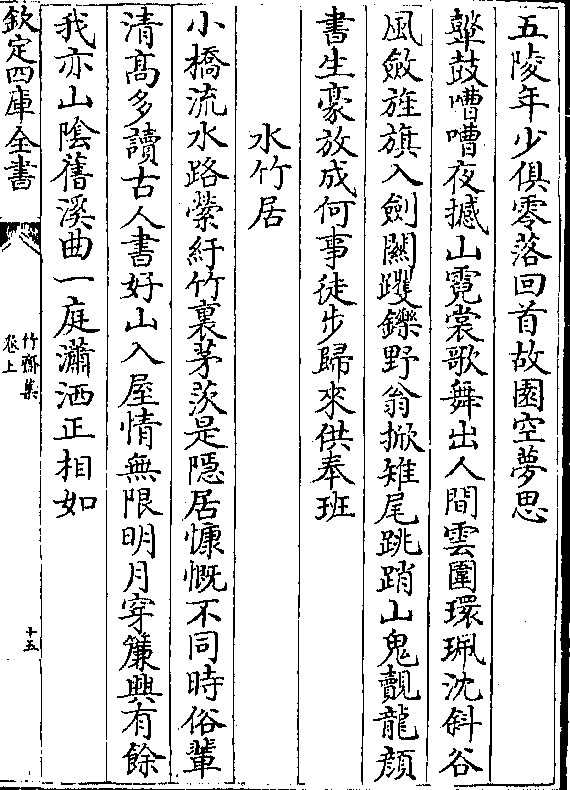 五陵年少俱零落回首故園空夢思
鼙鼓嘈嘈夜撼山霓裳歌舞出人間雲圍環珮沈斜谷
風斂旌旗入劍關躩鑠野翁掀雉尾跳踃山鬼覿龍顔
書生豪放成何事徒步歸來供奉班
水竹居
小橋流水路縈紆竹裏茅茨是隱居慷慨不同時俗輩
清髙多讀古人書好山入屋情無限明月穿簾興有餘
我亦山陰舊溪曲一庭瀟洒正相如
欽定四庫全書
竹齋集
卷上
十五